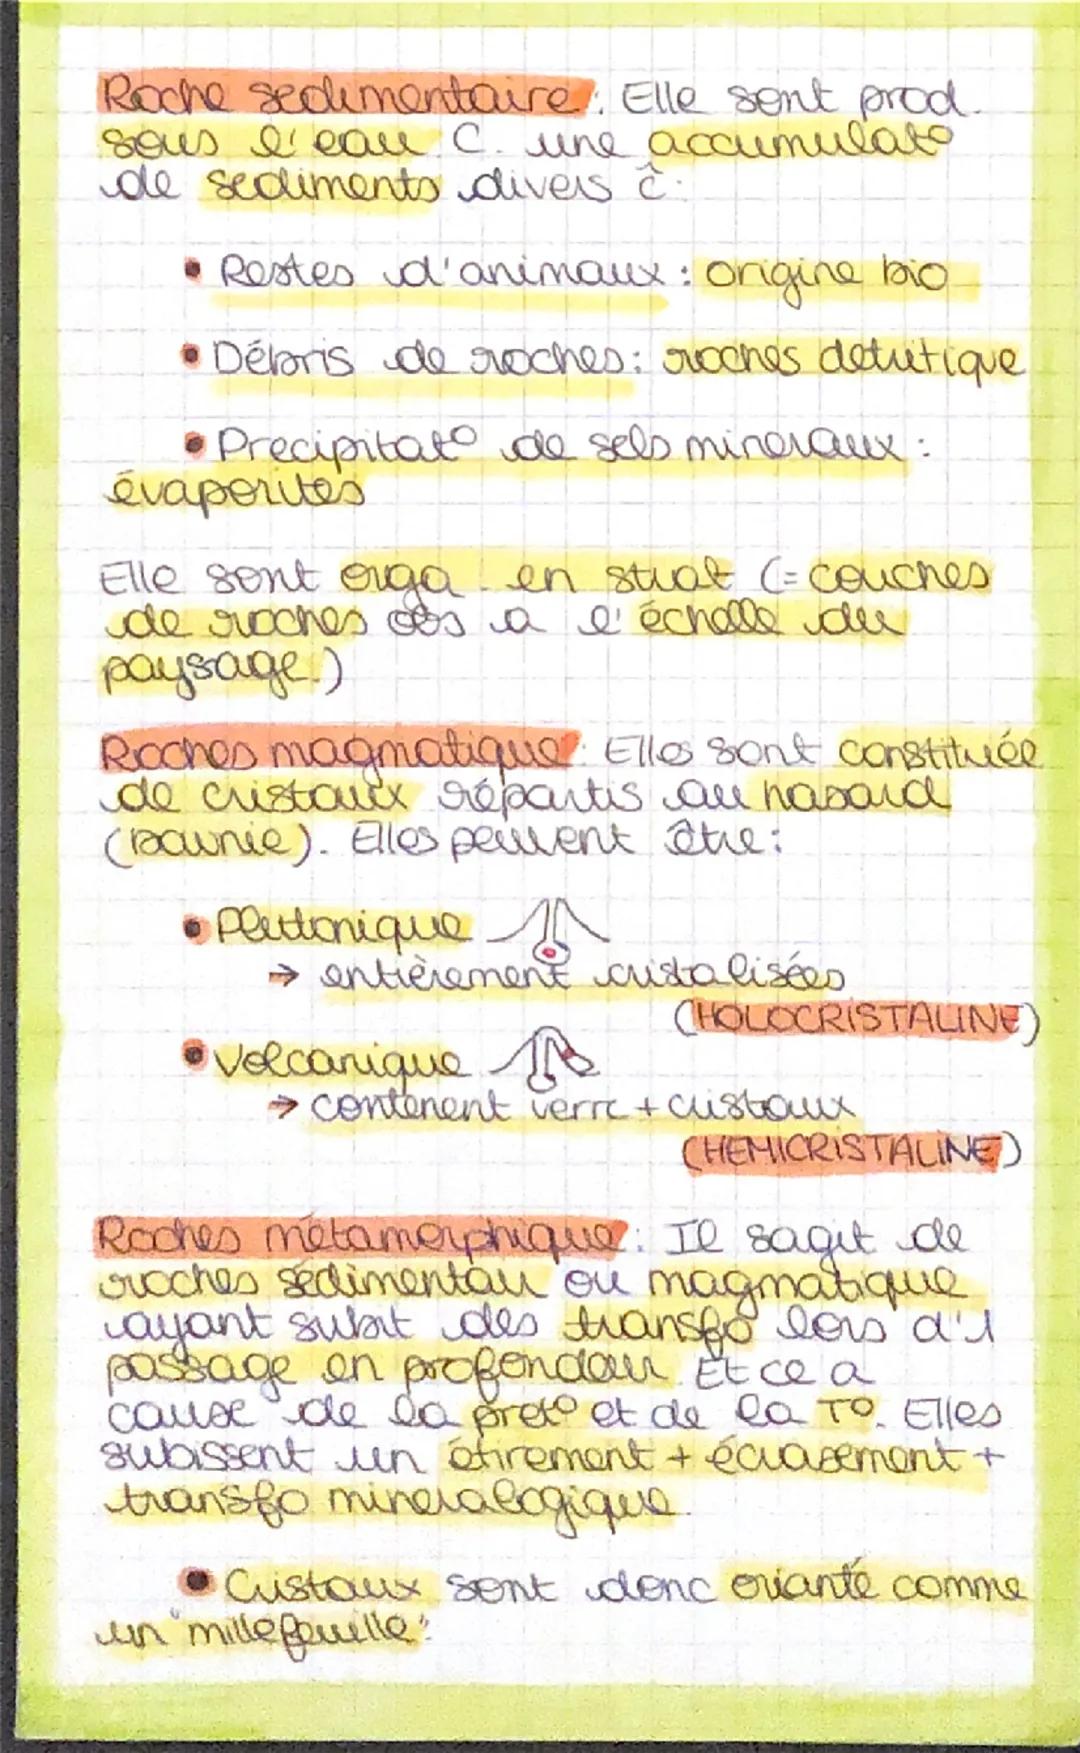 Roche sedimentaire : Elle sont prod.
sous l'eau. C. une accumulat°
de sediments divers ĉ :
• Restes d'animaux : origine bio
• Débris de roches : roches detritique
• Precipitat° de sels mineraux :
évaporites
Elle sont orga. en strat (= couches
de roches obs a l'échelle du
paysage.)
Roches magmatique : Elles sont constituée
de cristaux répartis au hasard
(bavnie). Elles peuvent être :
• Plutonique
→ entièrement cristalisées
(HOLOCRISTALINE)
• Volcanique
→ contenent verre + cristaux
(HEMICRISTALINE)
Roches métamorphique : Il sagit de
roches sédimentair ou magmatique
ayant subit des transfo lors d'1
passage en profondeur. Et ce a
cause de la pret° et de la T°. Elles
subissent un étirement + écrasement +
transfo mineralogique.
• Cristaux sont donc orianté comme
un "millefeuille".